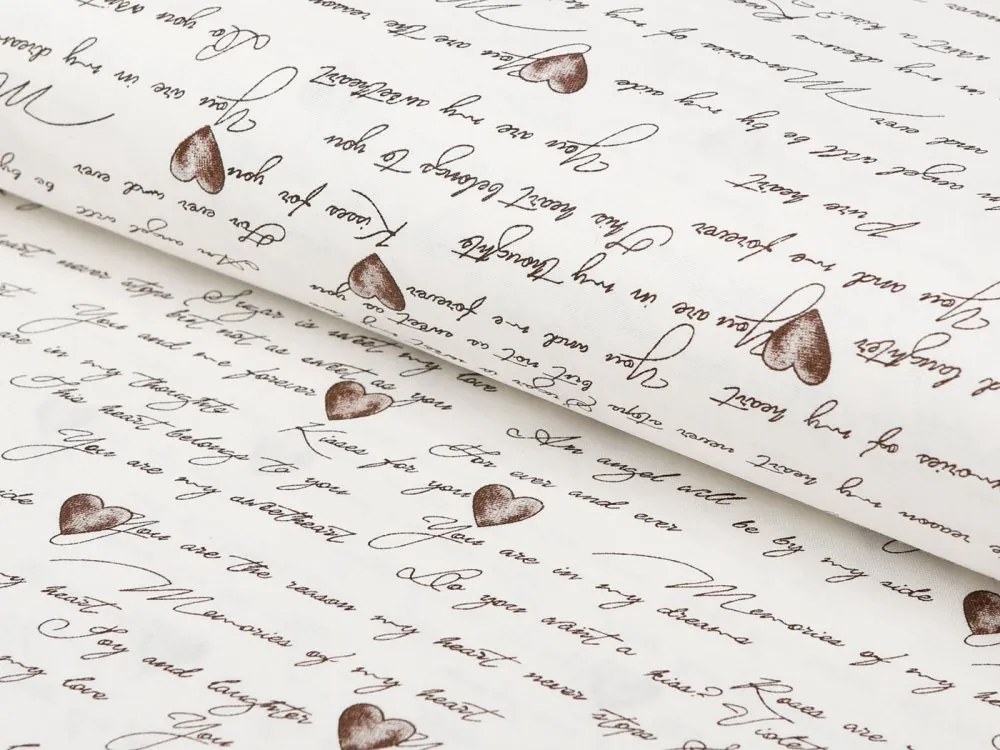 Do you want
You are the reason
of my
Roses
kiss?
want a
You are in my dreams
You are my sweetheart
be by my side
Memories of my
dreams
in my
For ever and ever
Kisses for you
This heart belongs to you
Pure heart
angel will be
and ever
You are in my thoughts
You and me forever
You are
laughter
Memories of my heart
but not as sweet as you
reason my heart never stops
Sugar is sweet my love
but not as sweet as you
You and me forever
are in my thoughts
Kisses for you
This heart belongs to you
For ever and ever
An angel will be by my side
You are my sweetheart
You are in my dreams
You are the reason my heart never stops
Do you want a kiss?
Memories of my heart
Memories of my
Joy and laughter
Roses are
my love
You